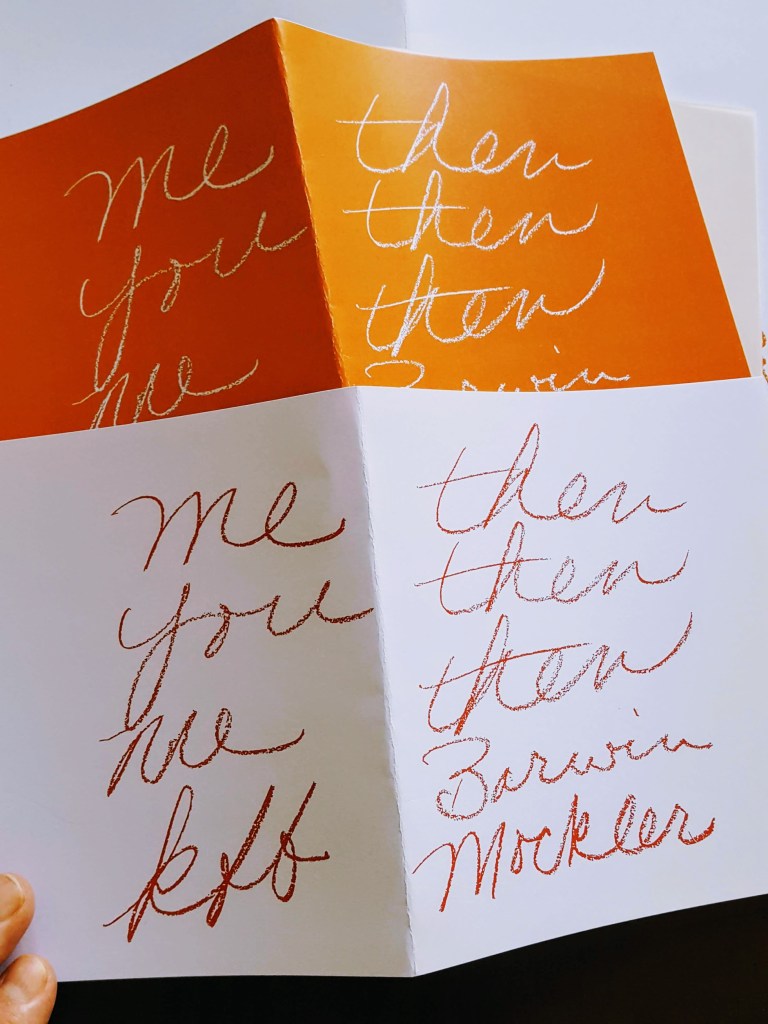 me
you
me
then
then
then
Barwin
me
you
me
kfb
then
then
then
Barwin
Mockler